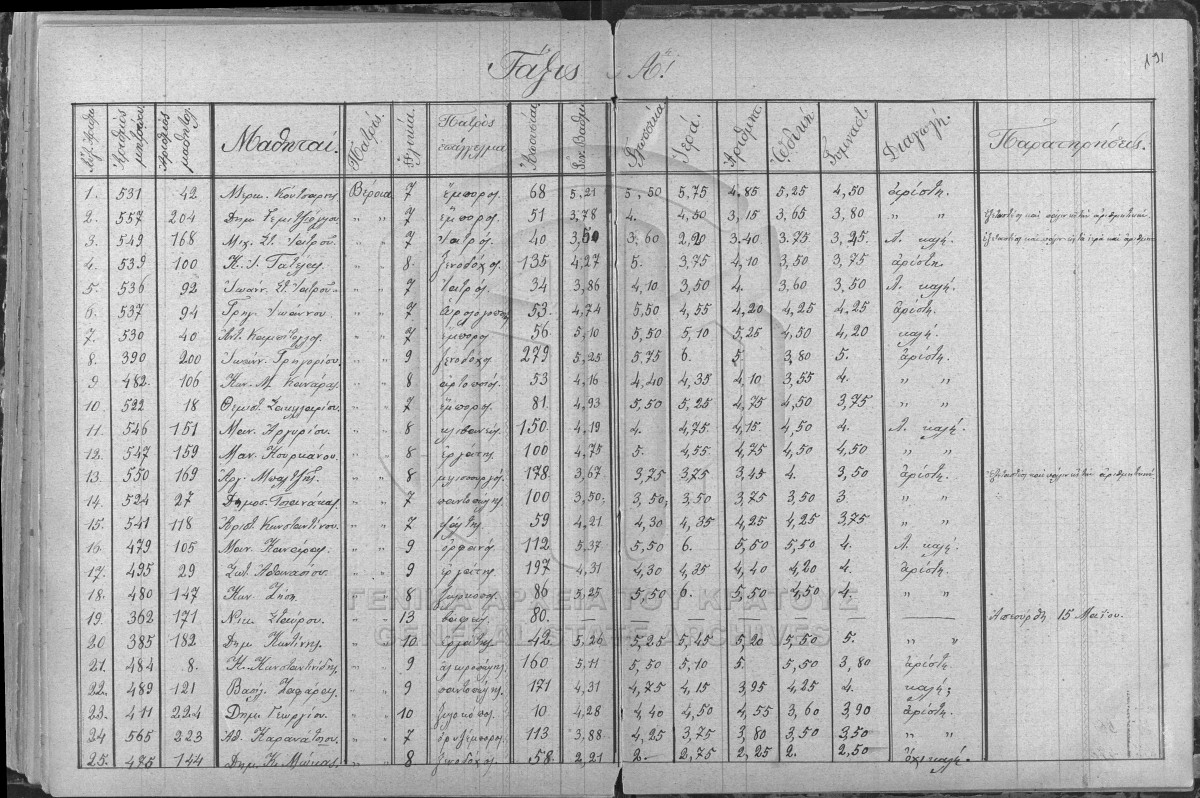 Τάξις Α!
191
Αὔξ. Ἀριθμ. Ἀριθμὸς μητρῴου. Ἀριθμὸς μαθητολ. Μαθηταί. Πατρίς. Ἡλικία. Πατρὸς ἐπάγγελμα Ἀπουσίαι Γεν. Βαθμ. Ἑλληνικά Ἱερά. Ἀριθμητ. Ὠδική Γυμναστ. Διαγωγή. Παρατηρήσεις.
1. 531 42 Μερκ. Κούτσαρης Βέροια 7 ἔμπορος. 68 5,21 5,50 5,75 4,85 5,25 4,50 ἀρίστη.
2. 557 204 Δημ. " " 7 ἔμπορος. 51 3,78 4. 4,50 3,15 3,65 3,80 " "
3. 549 168 Μιχ. Στ. Ἰατροῦ. " " 7 ἰατρός. 40 3,50 3,60 2,90 3.40 3.75 3,25. Λ. καλή.
4. 539 100 " " 8. ξενοδόχος. 135 4,27 5. 3,75 4,10 3,50 3,75 ἀρίστη.
5. 536 92 Ἰωάνν. Στ. Ἰατροῦ. " " 7 ἰατρός. 34 3,86 4,10 3,50 4. 3,60 3,50 Λ. καλή.
6. 537 94 Γρηγ. Ἰωάννου. " " 7 53. 4,74 5,50 4,55 4,20 4,25 4,25 ἀρίστη.
7. 530 40 Ἀντ. " " 7 ἔμπορος. 56 5,10 5,50 5,10 5,25 4,50 4,20 καλή.
8. 390 200 Ἰωάνν. Γρηγορίου. " " 9 ξενοδόχος. 279 5,25 5,75 6. 5. 3,80 5. ἀρίστη.
9. 482. 106 Κων. Μ. " " 8 ἀρτοποιός. 53 4,16 4,40 4,35 4,10 3,55 4. " "
10. 522 18 Θεμιστ. Σακελλαρίου. " " 7 ἔμπορος. 81. 4,93 5,50 5,25 4,75 4,50 3,75 " "
11. 546 151 Μαν. Ἀργυρίου. " " 8 κλιβανεύς. 150. 4,19 4. 4,75 4,15 4,50 4. Λ. καλή.
12. 547 159 Μαν. Κουρκάνου. " " 8 ἐργάτης. 100 4,75 5. 4,55 4,75 4,50 4,50 " "
13. 550 169 Ἀργ. " " 8 178 3,67 3,75 3,75 3,45 4. 3,50 ἀρίστη.
14. 524 27 Δημοσ. Τσανάκας. " " 7 παντοπώλης. 100 3,50 3,50 3.50 3,75 3,50 3 " "
15. 541 118 Ἀριστ. Κωνσταντίνου. " " 7 ῥάπτης. 59 4,21 4,30 4,35 4,25 4,25 3,75 " "
16. 479 105 Μαν. " " 9 ὀρφανός. 112 5,37 5,50 6. 5,50 5,50 4. Λ. καλή.
17. 495 29 Σωτ. Ἀθανασίου. " " 9 ἐργάτης. 197 4,31 4,30 4,35 4,40 4,20 4. ἀρίστη.
18. 480 147 Κων. Ζήση. " " 8 86 5,25 5,50 6. 5,50 4,50 4. " "
19. 362 171 Νικ. Σταύρου. " 13 βαφεύς. 80. Ἀπεσύρθη 15 Μαΐου.
20 385 182 Δημ. " " 10 ἐργάτης. 42. 5,20 5,25 5,45 5,20 5,50 5. " "
21. 484 8. Κ. Κωνσταντινίδης. " " 9 160 5,11 5,50 5,10 5 5,50 3,80 ἀρίστη.
22. 489 121 Βασίλ. Ζαφάρας. " " 9 παντοπώλης. 171 4,31 4,75 4,15 3,95 4,25 4. καλή.
23. 411 224 Δημ. Γεωργίου. " " 10 ξυλοκόπος. 10 4,28 4,40 4,50 4,55 3,60 3,90 ἀρίστη.
24 565 223 Ἀθ. " " 7 ὀρυζέμπορος. 113 3,88. 4,25 3,75 3,80 3,50 3,50 " "
25. 485 144 Δημ. Κ. " " 8 ξενοδόχος. 58. 2,21 2. 2,75 2,25 2. 2,50 ὄχι καλή.
ΓΕΝΙΚΑ ΑΡΧΕΙΑ ΤΟΥ ΚΡΑΤΟΥΣ
GENERAL STATE ARCHIVES